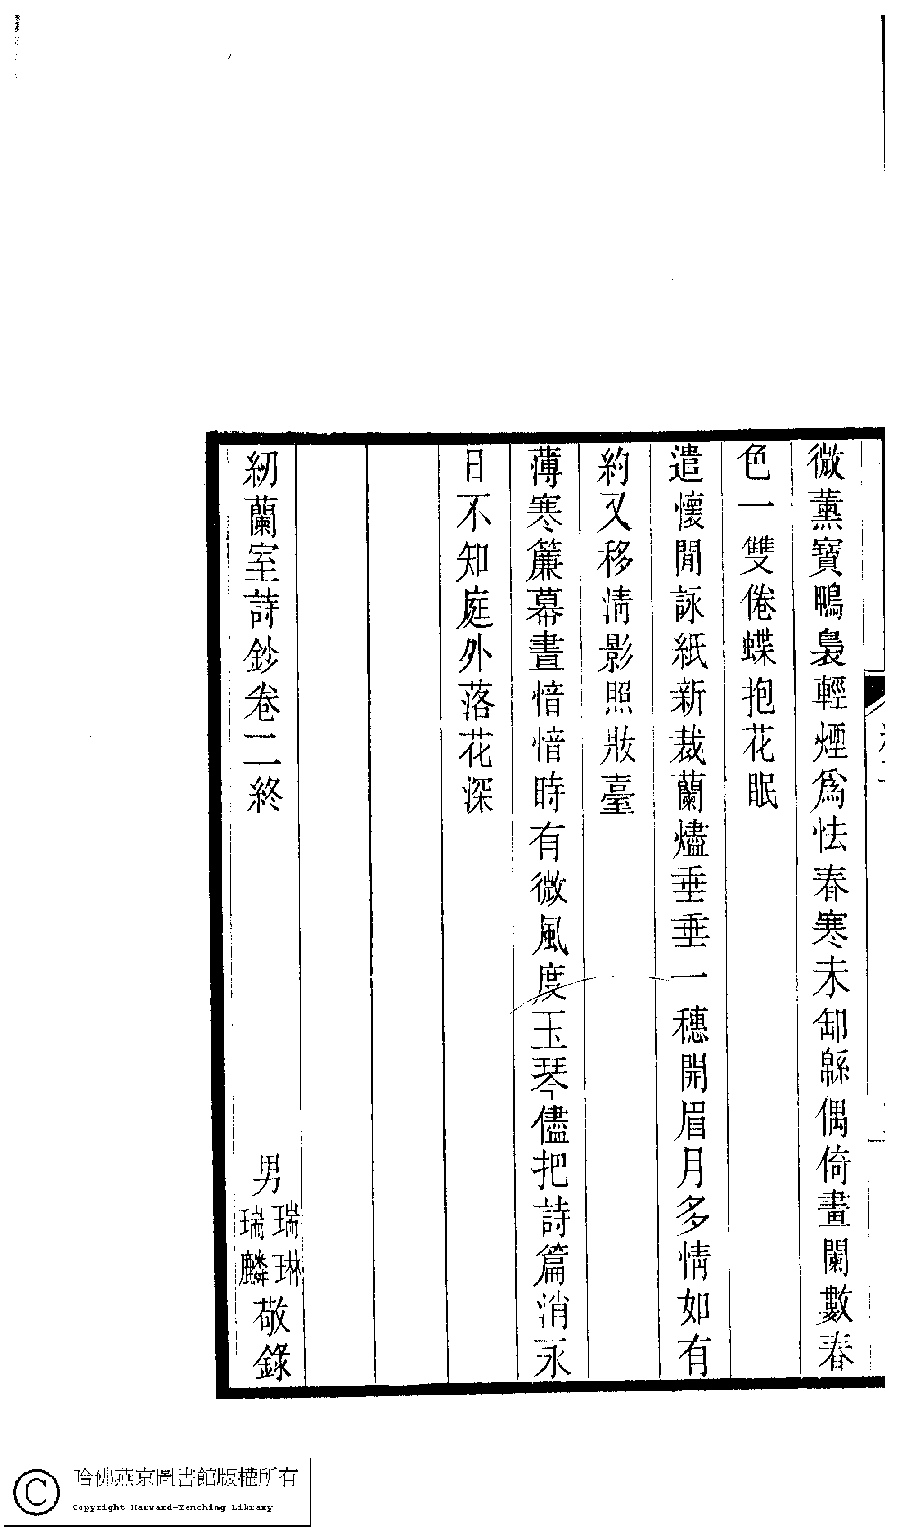 微薰寶鴨裊輕煙爲怯春寒未卸緜偶倚畫闌數春
色一雙倦蝶抱花眠
遣懷閒詠紙新裁蘭燼垂垂一穗開眉月多情如有
約又移淸影照妝臺
薄寒簾幕晝愔愔時有微風度玉琴儘把詩篇消永
日不知庭外落花深
紉蘭室詩鈔卷二終
男瑞琳瑞麟敬錄
哈佛燕京圖書館版權所有
Copyright Harvard-Yenching Library